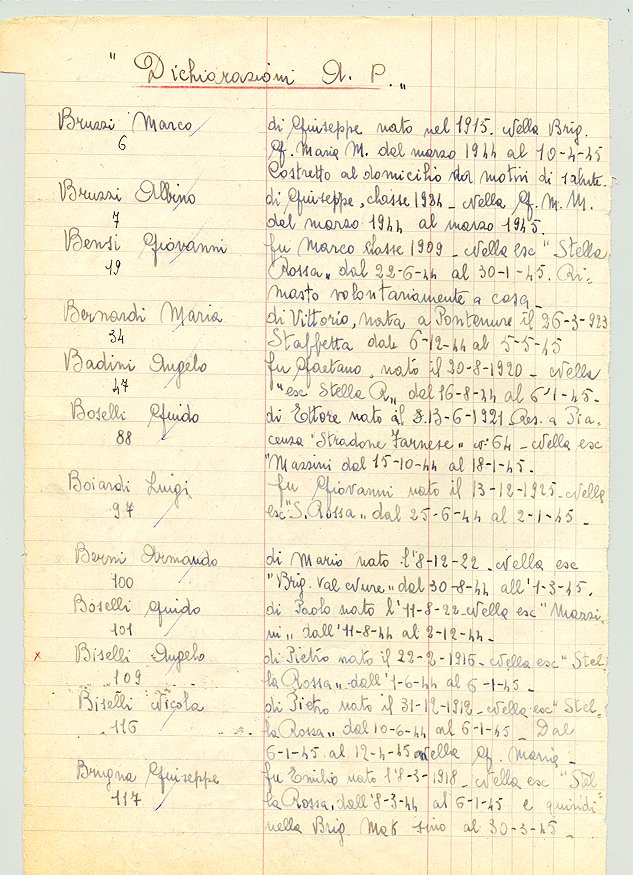 " Dichiarazioni A. P. "
Bruzzi Marco di Giuseppe nato nel 1915. Nella Brig.
6 G. Maria M. dal marzo 1944 al 10-4-45
Costretto al domicilio da motivi di salute.
Bruzzi Albino di Giuseppe, classe 1924 - Nella G. M. M.
7 dal marzo 1944 al marzo 1945.
Bensi Giovanni fu Marco classe 1909 - Nella esc "Stella
19 Rossa" dal 22-6-44 al 30-1-45. Ri-
masto volontariamente a casa -
Bernardi Maria di Vittorio, nata a Pontenure il 26-3-923
34 Staffetta dal 6-12-44 al 5-5-45
Badini Angelo fu Gaetano, nato il 30-8-1920 - Nella
47 "esc Stella R" dal 16-8-44 al 6-1-45-
Boselli Guido di Ettore nato il 13-6-1921. Res. a Pia-
88 cenza "Stradone Farnese" n° 64 - Nella esc
"Mazzini dal 15-10-44 al 18-1-45.
Boiardi Luigi fu Giovanni nato il 13-12-1925. Nella
97 esc "S. Rossa" dal 25-6-44 al 2-1-45 -
Berni Armando di Mario nato l'8-12-22. Nella esc
100 "Brig. Val Nure" dal 30-8-44 all'1-3-45.
Boselli Guido di Paolo nato l'11-8-22. Nella esc "Mazzi-
101 ni" dall'11-8-44 al 2-12-44 -
x Biselli Angelo di Pietro nato il 22-2-1916 - Nella esc "Stel-
109 la Rossa" dall'1-6-44 al 6-1-45 -
Biselli Nicola di Pietro nato il 31-12-1912 - Nella esc "Stel-
116 la Rossa" dal 10-6-44 al 6-1-45 - Dal
6-1-45 al 12-4-45 Nella G. Maria -
Brugna Giuseppe fu Emilio nato l'8-3-1918 - Nella esc "Stel
117 la Rossa, dall'8-3-44 al 6-1-45 e quindi
nella Brig. sino al 30-3-45 -